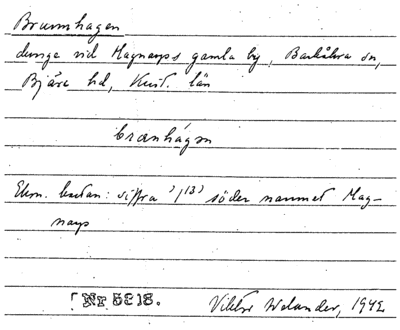 Brunnhagen
dunge vid Magnarps gamla by, Barkåkra sn,
Bjäre hd, Krist. län
brɷnhágɘn
Ekon. kartan: siffra 1/13) söder namnet Mag-
narp
Nr 5818.
Viktor Welander, 1942